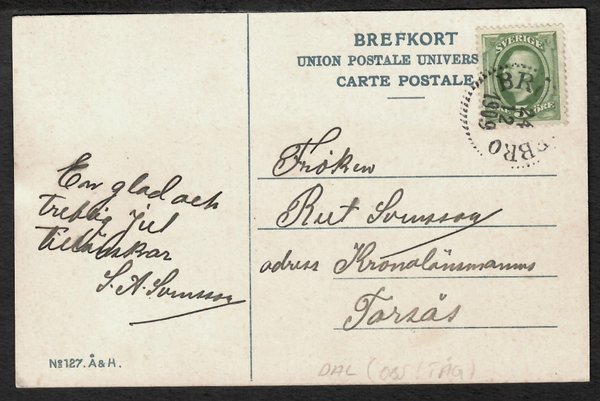 BREFKORT
UNION POSTALE UNIVERS
CARTE POSTALE
SVERIGE
ÖRE
BR
24
12
1909
EBRO
En glad och
treflig Jul
tillönskar
S. A. Svensson
Fröken
Rut Svensson
adress Kronolänsmannens
Torsås
No 127. Å & H.
DAL (OBS! TÅG)